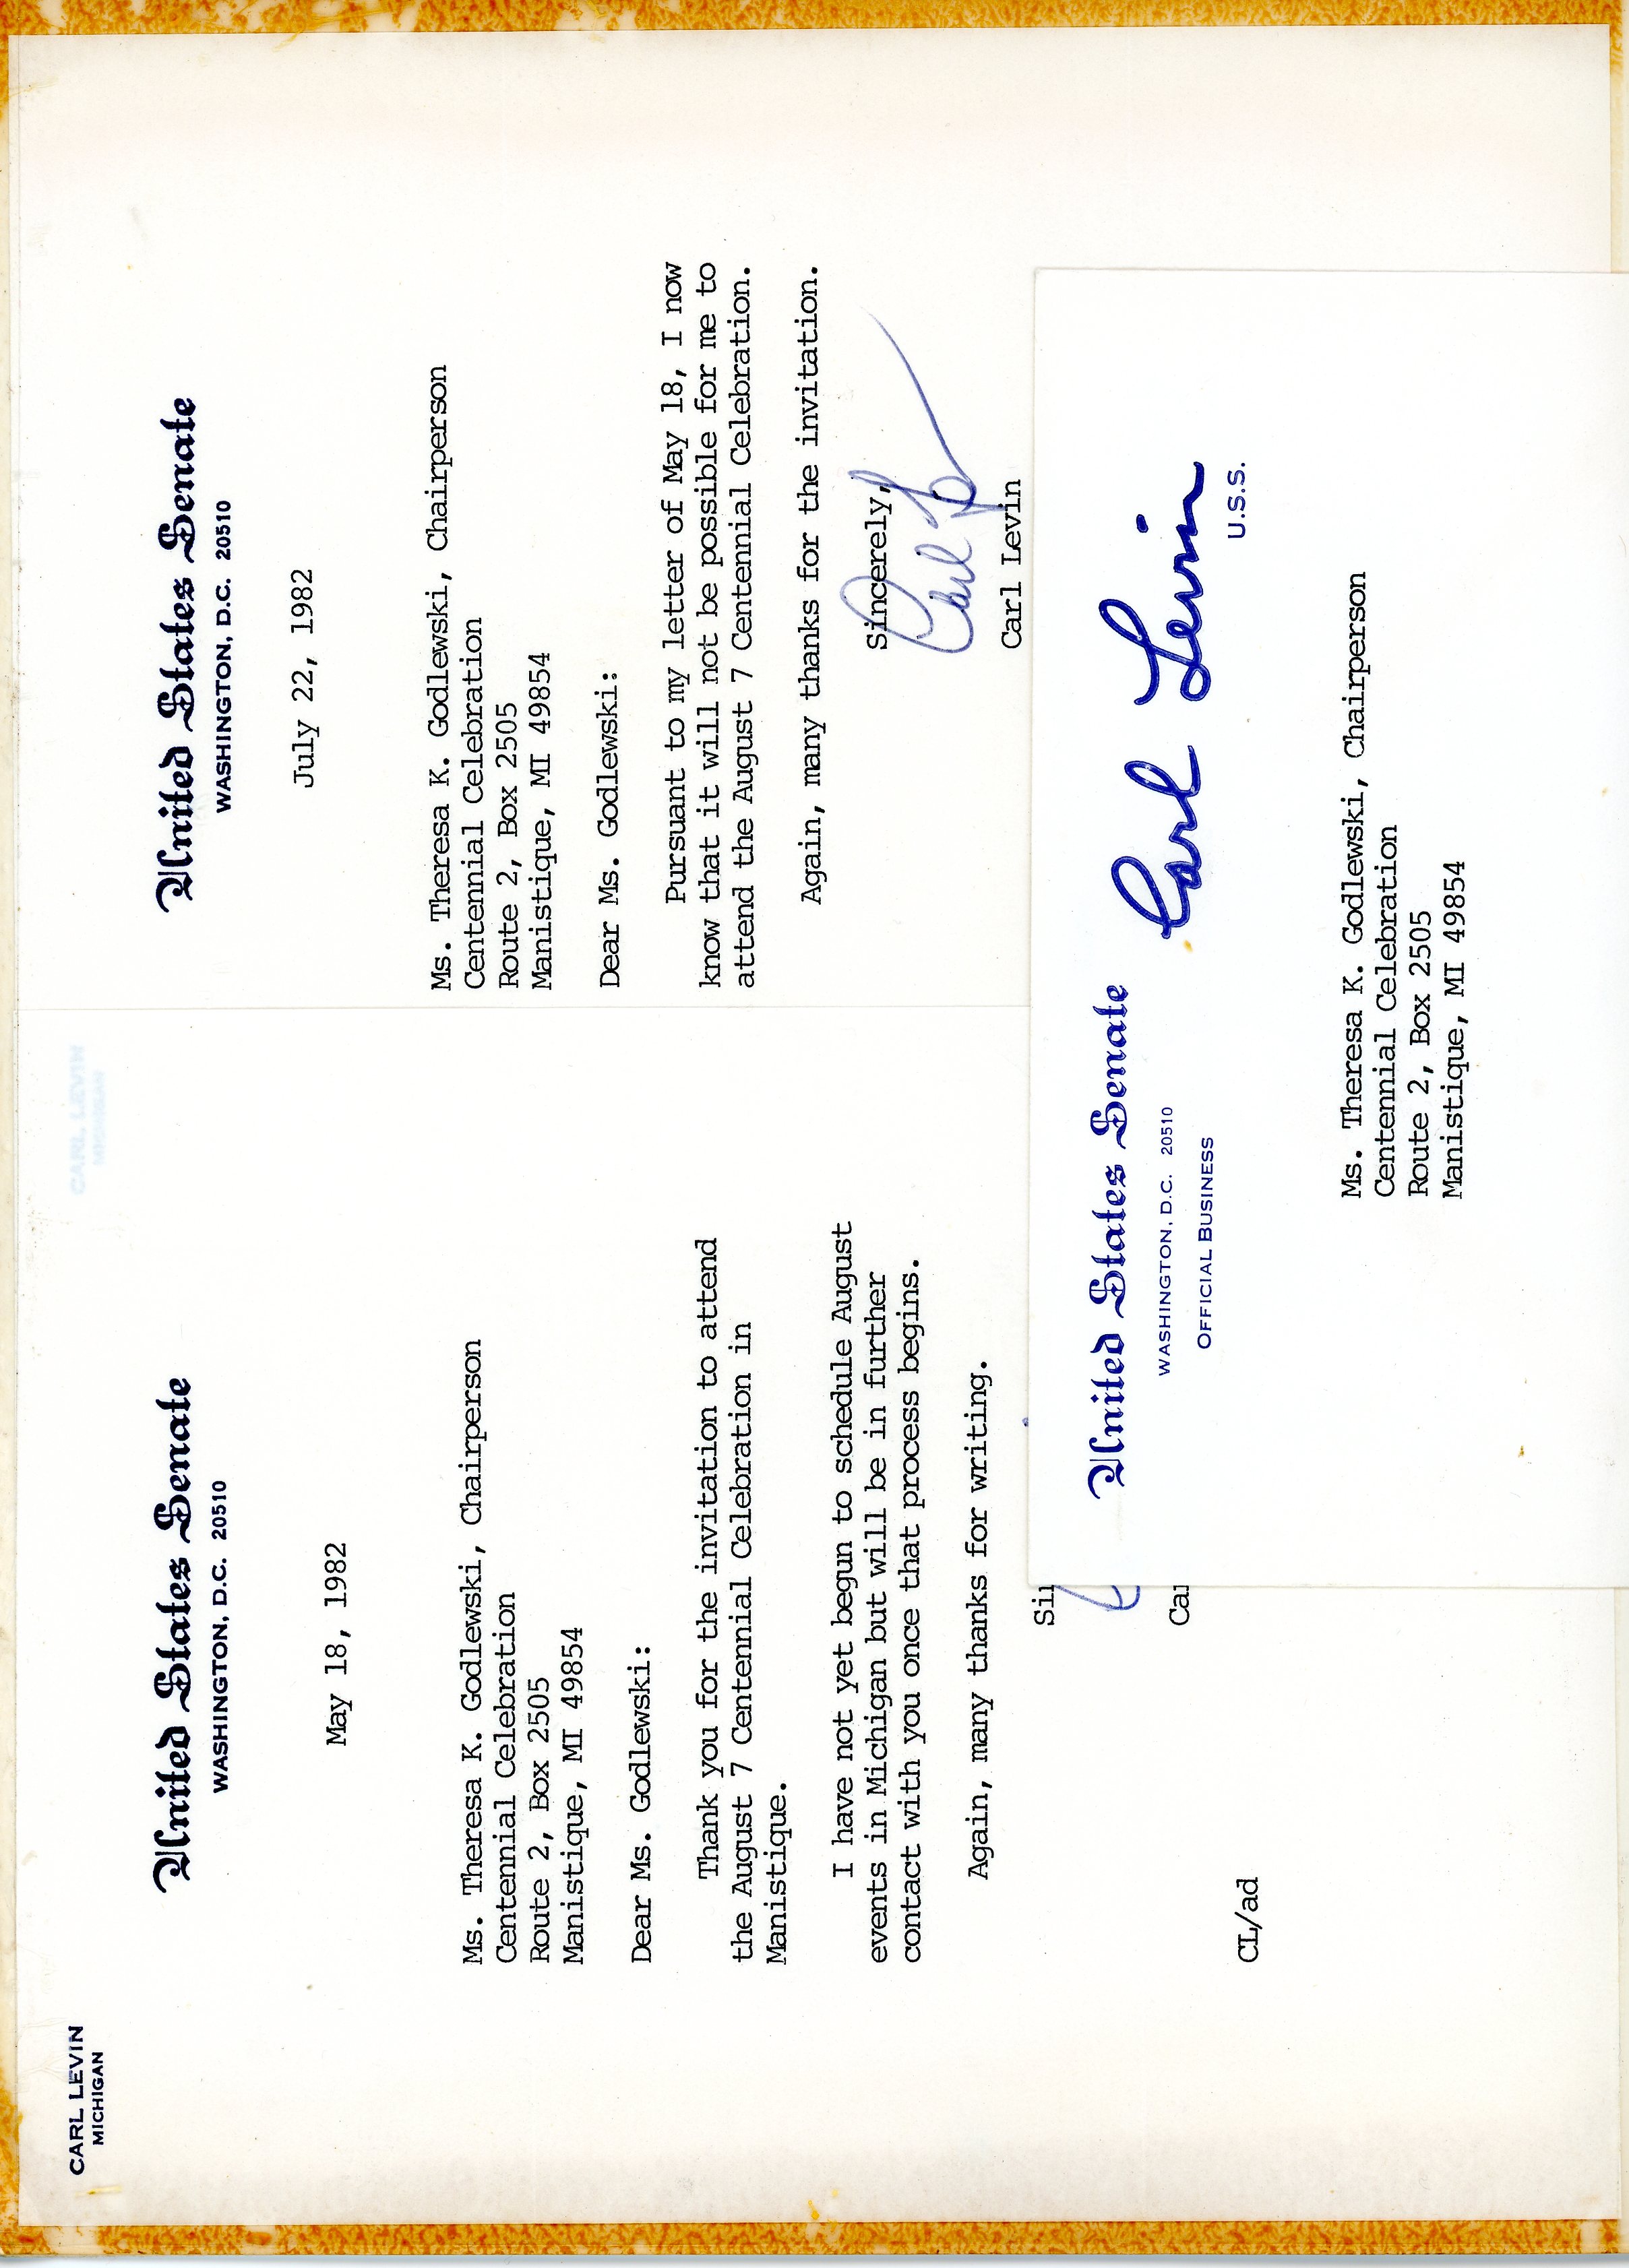 CARL LEVIN
MICHIGAN
United States Senate
WASHINGTON, D.C. 20510
May 18, 1982
Ms. Theresa K. Godlewski, Chairperson
Centennial Celebration
Route 2, Box 2505
Manistique, MI 49854
Dear Ms. Godlewski:
Thank you for the invitation to attend
the August 7 Centennial Celebration in
Manistique.
I have not yet begun to schedule August
events in Michigan but will be in further
contact with you once that process begins.
Again, many thanks for writing.
Sin
Car
CL/ad
CARL LEVIN
MICHIGAN
United States Senate
WASHINGTON, D.C. 20510
July 22, 1982
Ms. Theresa K. Godlewski, Chairperson
Centennial Celebration
Route 2, Box 2505
Manistique, MI 49854
Dear Ms. Godlewski:
Pursuant to my letter of May 18, I now
know that it will not be possible for me to
attend the August 7 Centennial Celebration.
Again, many thanks for the invitation.
Sincerely,
Carl Levin
Carl Levin
United States Senate
WASHINGTON, D.C. 20510
OFFICIAL BUSINESS
Carl Levin
U.S.S.
Ms. Theresa K. Godlewski, Chairperson
Centennial Celebration
Route 2, Box 2505
Manistique, MI 49854